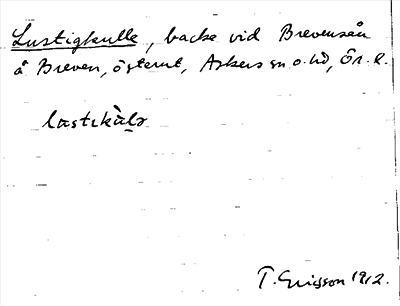 Lustigkulle, backe vid Brevensån
å Breven, österut, Askers sn o. hd, Ör. l.
lastıkàlɘ
T. Ericsson 1912.